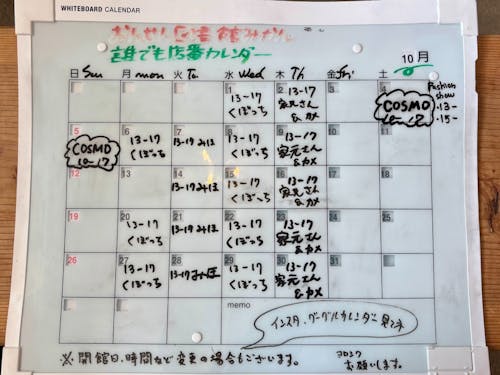 WHITEBOARD CALENDAR
誰でも店番カレンダー
10月
日 Sun 月 mon 火 Tu 水 Wed 木 Th 金 fri 土
1 13-17 くぼっち
2 13-17 家元さん & カメ
3
4 COSMO 10-17
Fashion show
・13-
・15-
5 COSMO 10-17
6 13-17 くぼっち
7 13-17 みほ
8 13-17 くぼっち
9 13-17 家元さん & カメ
10
11
12
13
14 13-17 みほ
15 13-17 くぼっち
16 13-17 家元さん & カメ
17
18
19
20 13-17 くぼっち
21 13-17 みほ
22 13-17 くぼっち
23 13-17 家元さん & カメ
24
25
26
27 13-17 くぼっち
28 13-17 みほ
29 13-17 くぼっち
30 13-17 家元さん & カメ
31
memo
インスタ、グーグルカレンダー見てネ
※開館日、時間など変更の場合もございます。
お願いします。